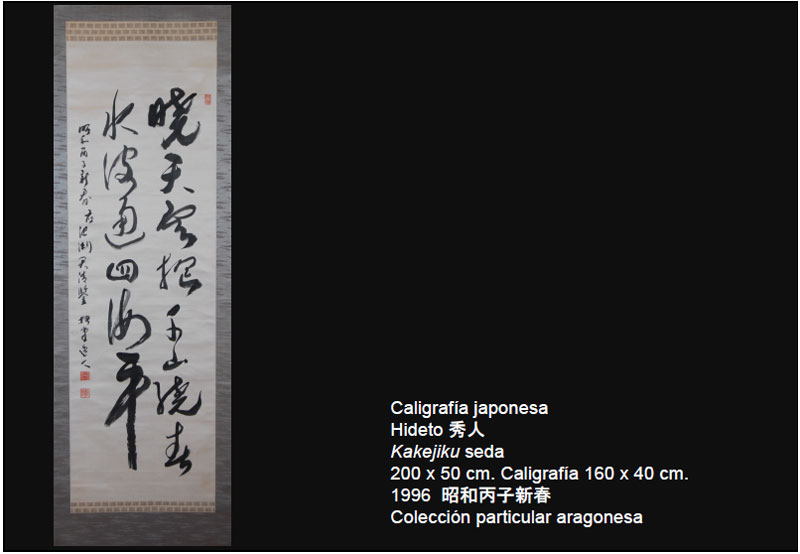 曉天雲千山繞春
水波通四海平
昭和丙子新春
Caligrafía japonesa
Hideto 秀人
Kakejiku seda
200 x 50 cm. Caligrafía 160 x 40 cm.
1996 昭和丙子新春
Colección particular aragonesa